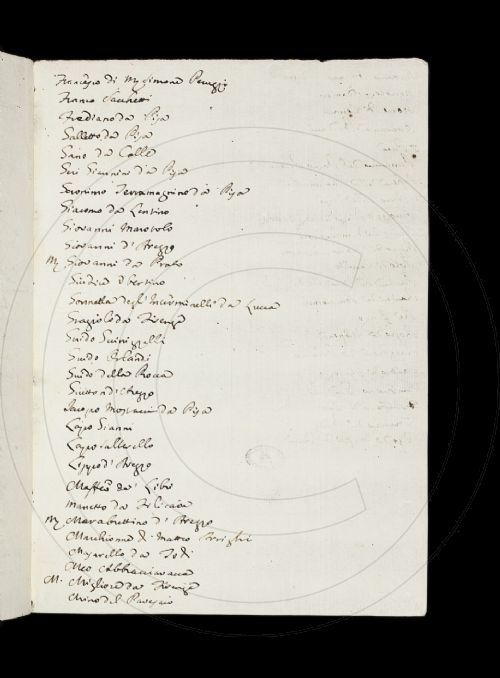 Francesco di Mr Simone Peruzzi
Franco Sacchetti
Frediano da Pisa
Galletto da Pisa
Gano da Colle
Geri Giannini da Pisa
Geronimo Terramagnino da Pisa
Giacomo da Lentino
Giovanni Marotolo
Giovanni d'Arezzo
Mr Giovanni da Prato
Giudice Ubertino
Gonnella degl' Interminelli da Lucca
Graziolo da Firenze
Guido Guinizzelli
Guido Orlandi
Guido della Rocca
Guitton d'Arezzo
Jacopo da Pisa
Lapo Gianni
Lapo Salterello
Lippo d'Arezzo
Maffeo de' Libri
Manetto da Filicaia
Mr Marabuttino d'Arezzo
Marchionne di Matteo Arrighi
Masarello da Todi
Meo Abbracciavacca
M. Migliore da Firenze
Mino del Pavesaio